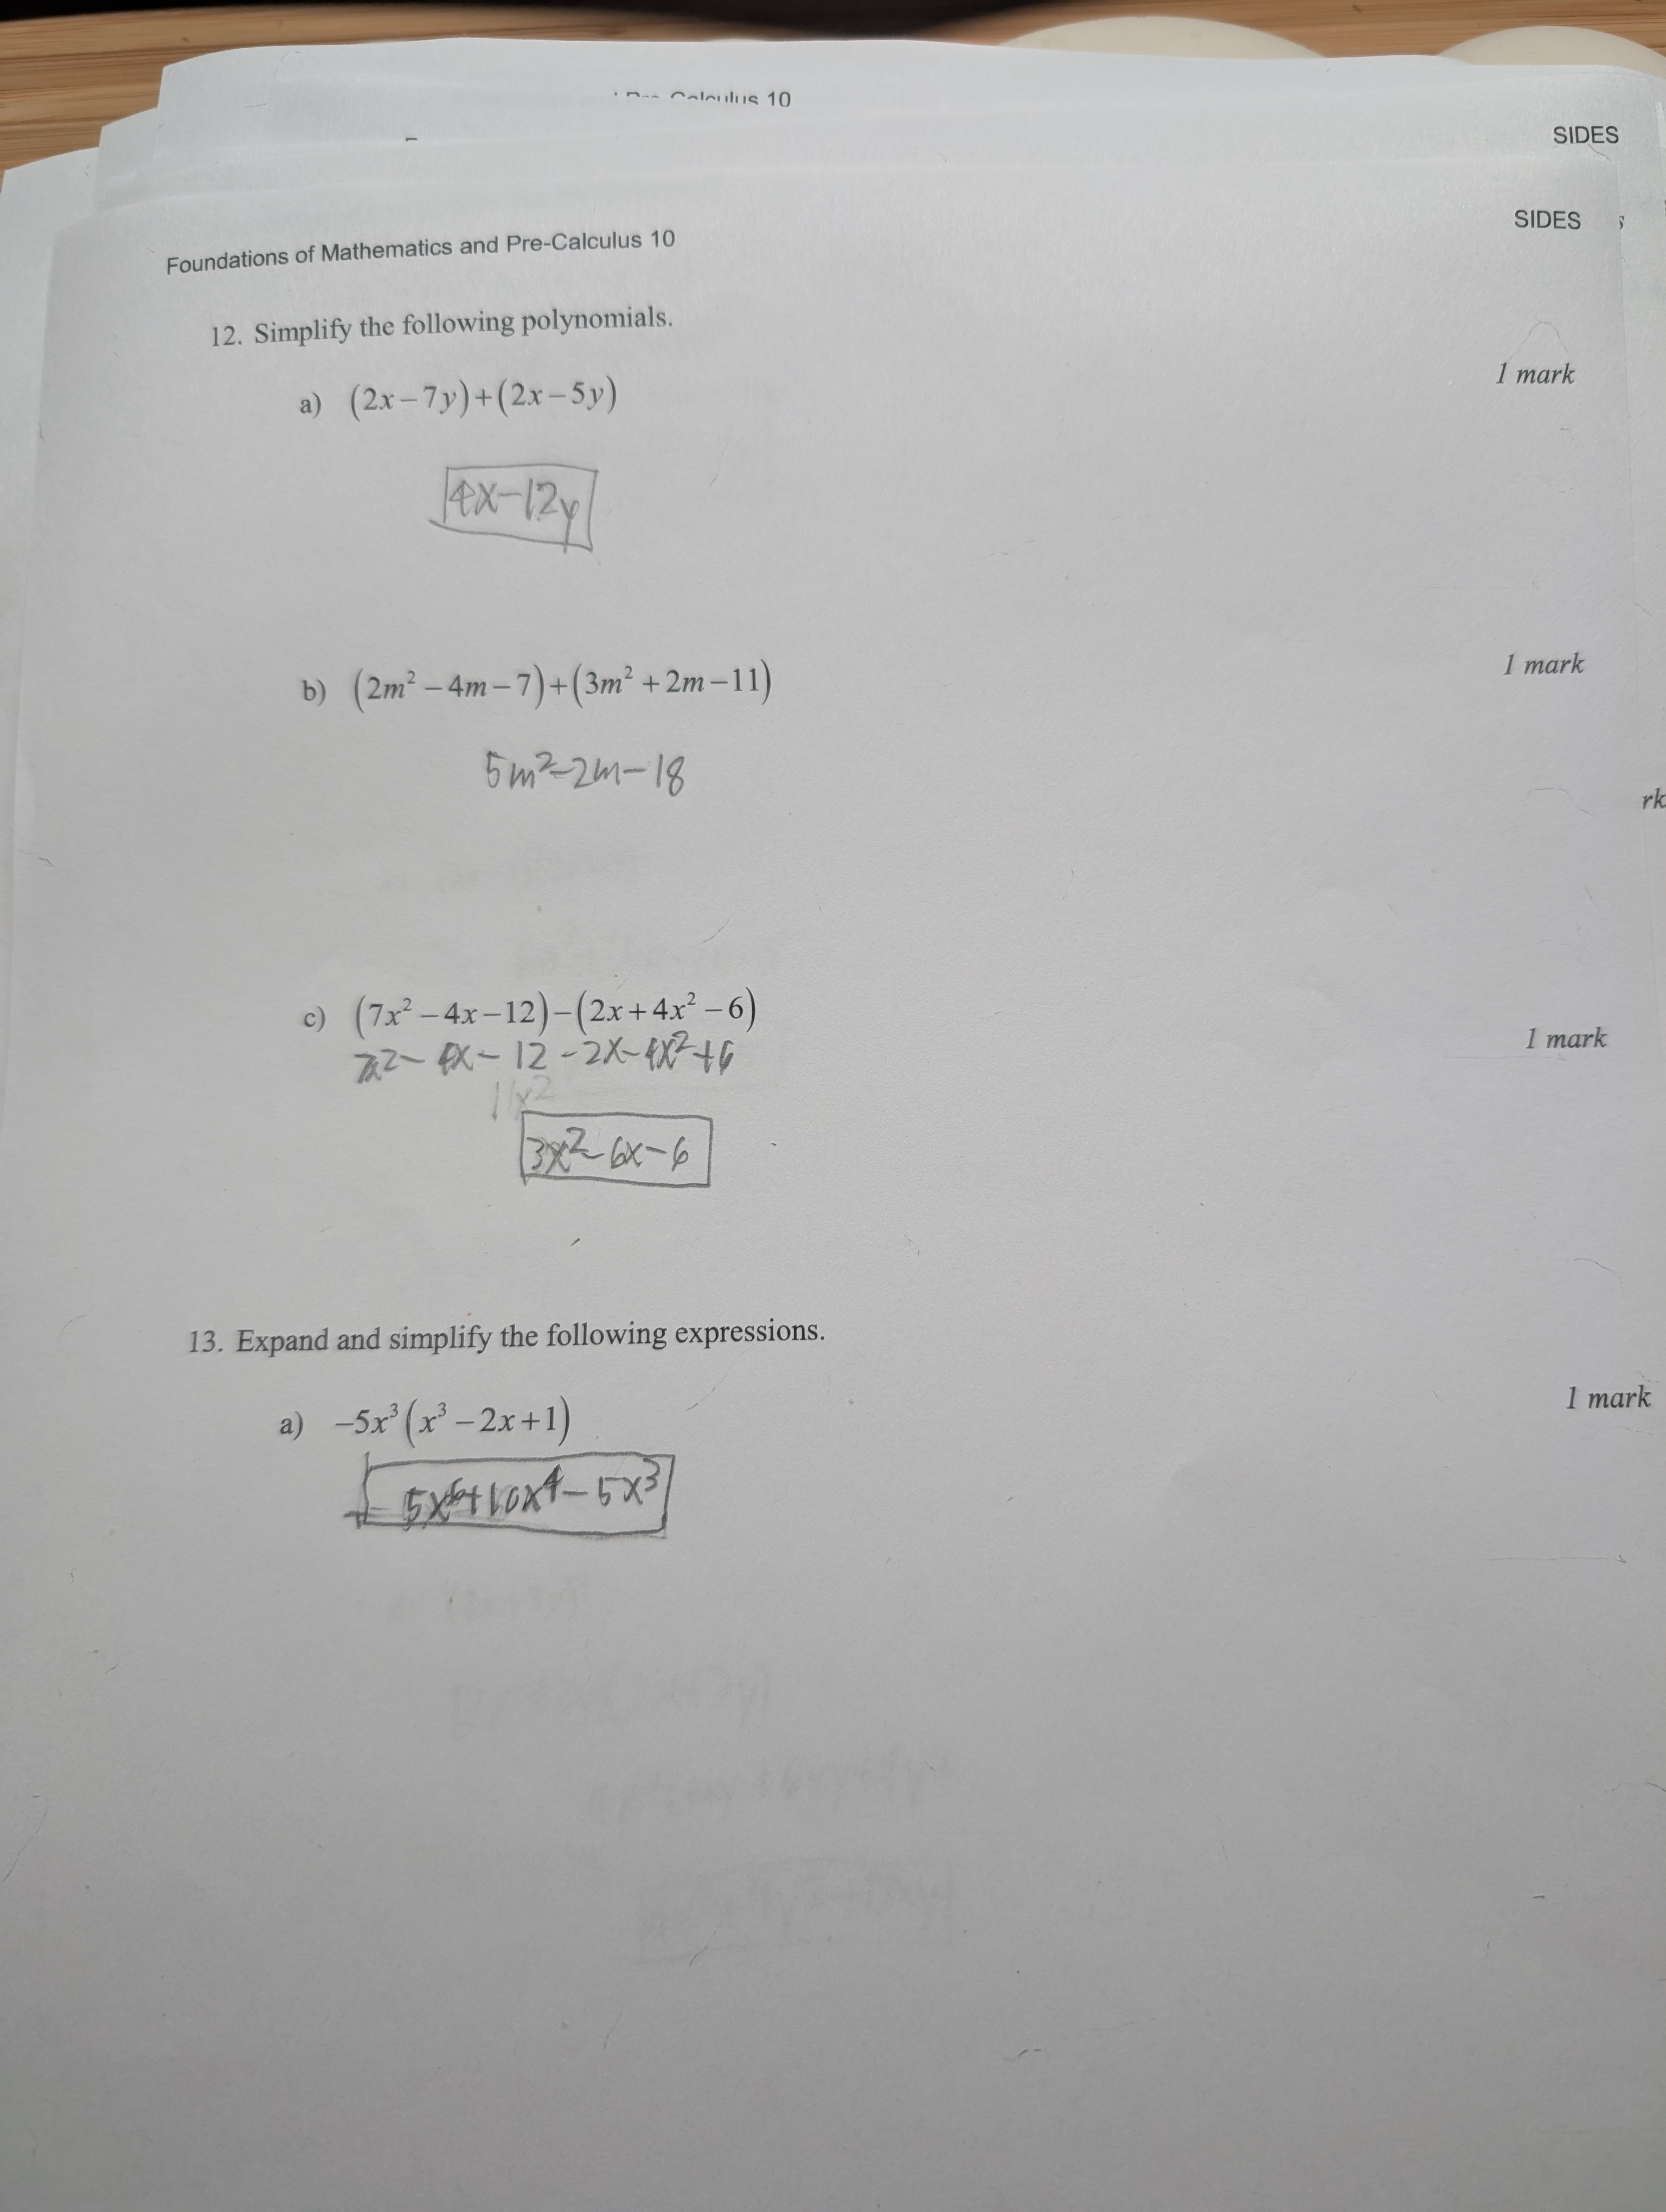 Calculus 10
SIDES
SIDES
Foundations of Mathematics and Pre-Calculus 10
12. Simplify the following polynomials.
1 mark
a) (2x – 7y) + (2x – 5y)
4x – 12y
1 mark
b) (2m² – 4m – 7) + (3m² + 2m – 11)
5m² – 2m – 18
rk
c) (7x² – 4x – 12) – (2x + 4x² – 6)
1 mark
7x² – 4x – 12 – 2x – 4x² + 6
11x²
3x² – 6x – 6
13. Expand and simplify the following expressions.
1 mark
a) –5x³(x³ – 2x + 1)
– 5x⁶ + 10x⁴ – 5x³